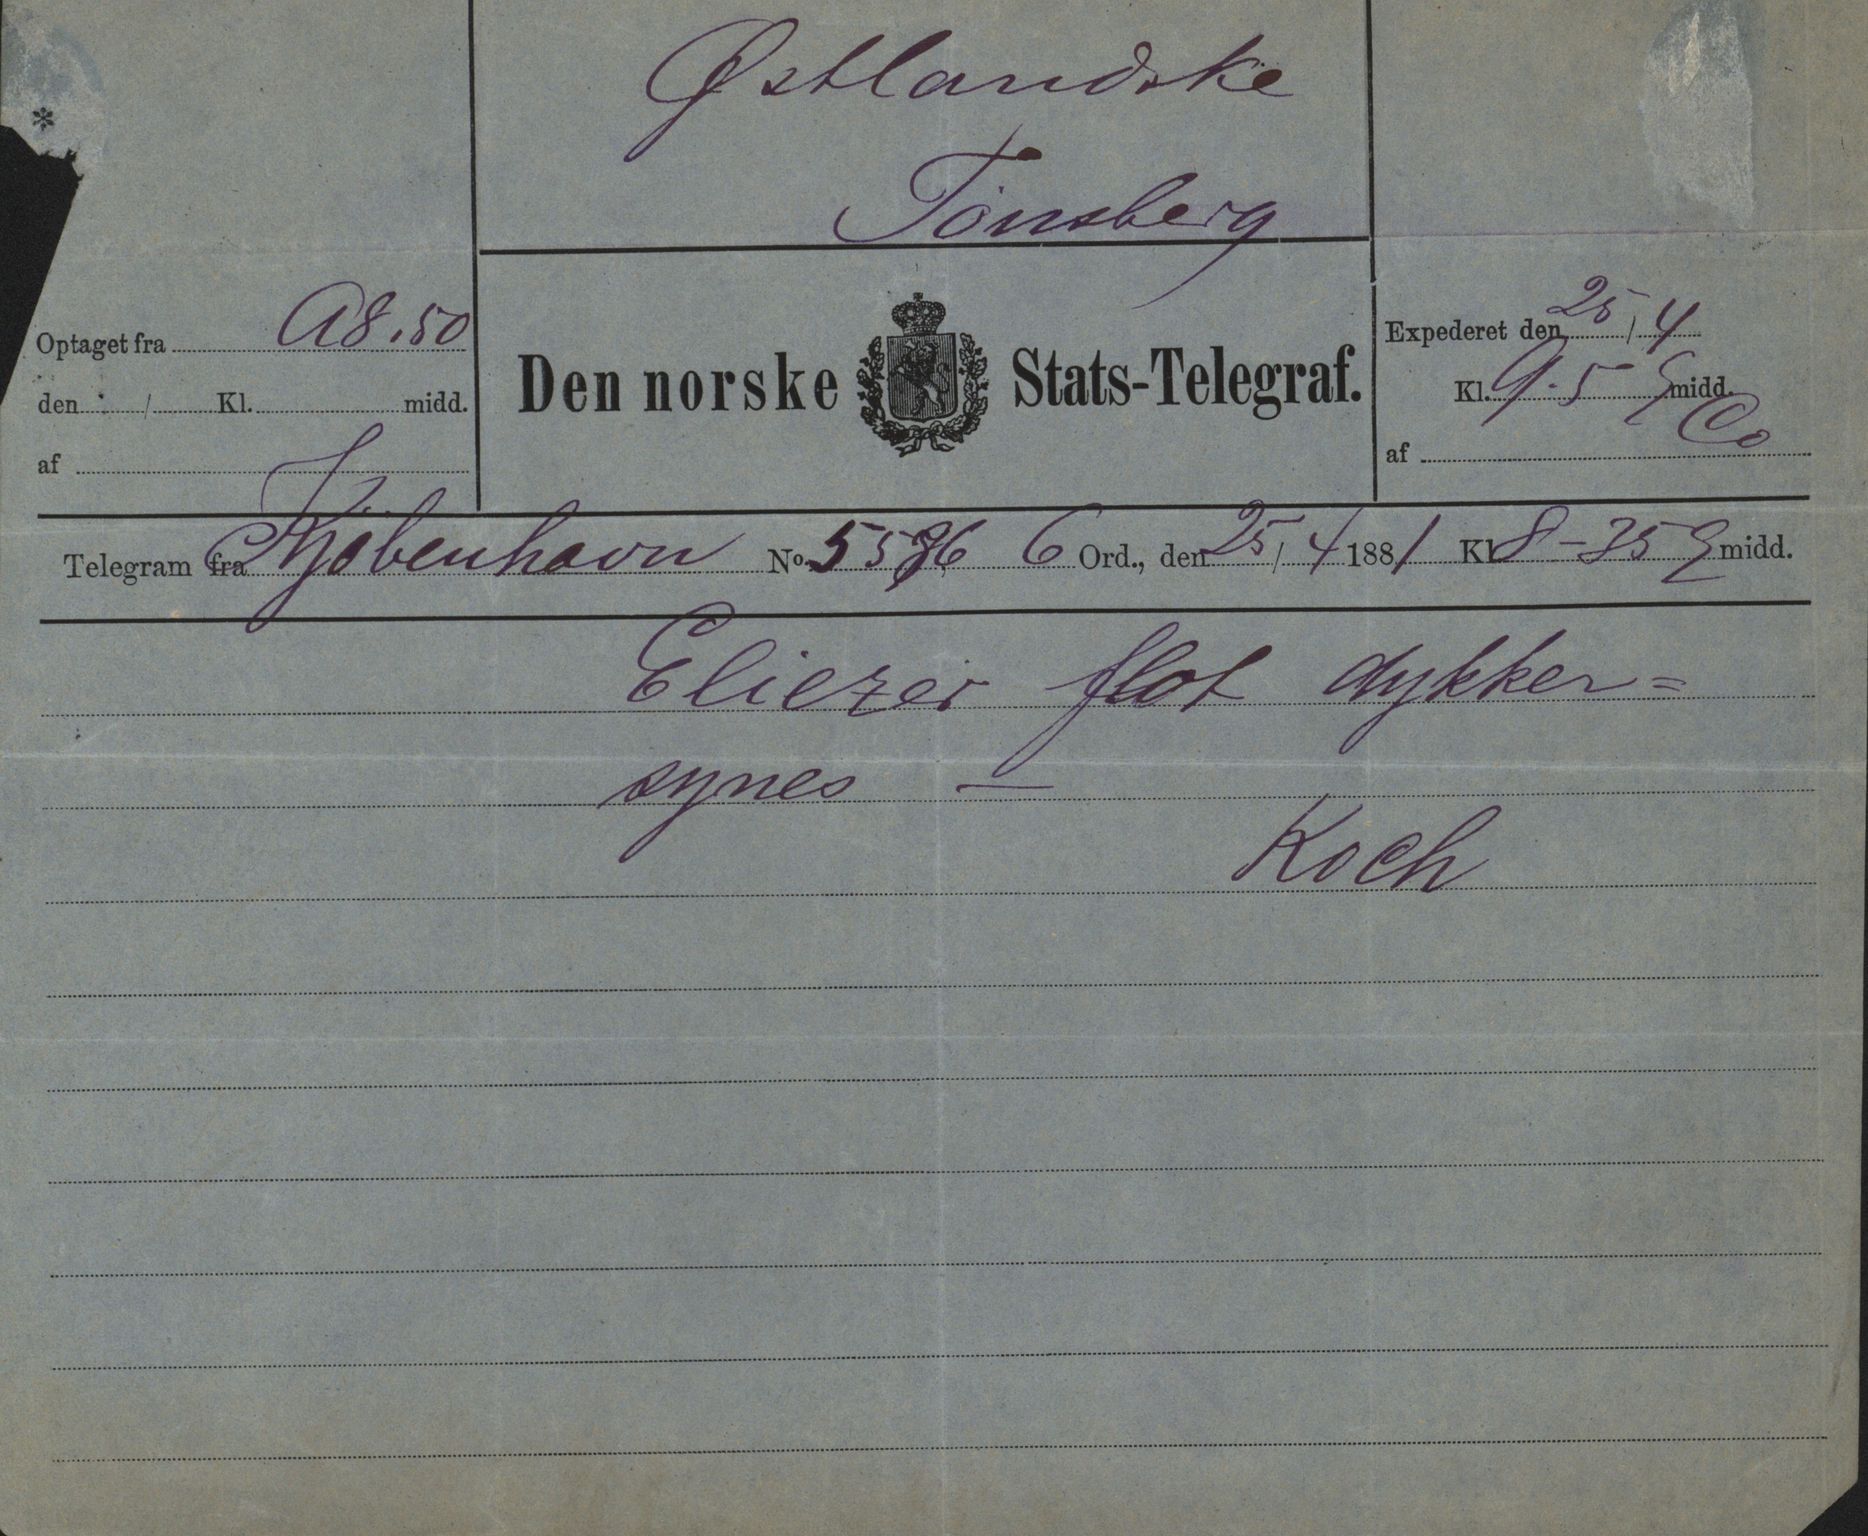 Østlandske
Tönsberg
*
Optaget fra A8.50
den / Kl. midd.
af
Den norske Stats-Telegraf.
Expederet den 25/4
Kl. 9.5 midd.
af Co
Telegram fra Kjøbenhavn No. 5 6 Ord., den 25/4 1881 Kl. 8-35 midd.
Eliezer flot dykker=
synes —
Koch